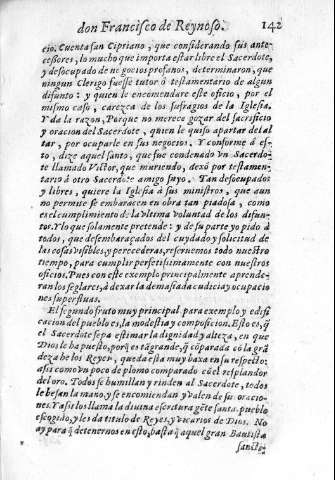 don Francisco de Reynoso. 142
cio. Cuenta san Cipriano, que considerando sus ante-
cessores, lo mucho que importa estar libre el Sacerdote,
y desocupado de negocios profanos, determinaron, que
ningun Clerigo fuesse tutor ô testamentario de algun
difunto: y quien le encomendare este oficio, por el
mismo caso, carezca de los sufragios de la Iglesia.
Y da la razon, Porque no merece gozar del sacrificio
y oracion del Sacerdote, quien le quiso apartar del al
tar, por ocuparle en sus negocios. Y conforme á es-
to, dize aquel santo, que fue condenado vn Sacerdo-
te llamado Victor, que muriendo, dexó por testamen-
tario á otro Sacerdote amigo suyo. Tan desocupados
y libres, quiere la Iglesia á sus ministros, que aun
no permite se embaracen en obra tan piadosa, como
es el cumplimiento de la vltima voluntad de los difun-
tos. Y lo que solamente pretende: y de su parte yo pido à
todos, que desembaraçados del cuydado y solicitud de
las cosas visibles, y perecederas, reseruemos todo nuestro
tiempo, para cumplir perfetissimamente con nuestros
oficios. Pues con este exemplo principalmente aprende-
ran los seglares, à dexar la demasiada cudicia y ocupacio
nes superfluas.
El segundo fruto muy principal para exemplo y edifi
cacion del pueblo es, la modestia y composicion. Esto es, q̃
el Sacerdote sepa estimar la dignidad y alteza, en que
Dios le ha puesto, porq̃ es tã grande, q̃ cõparada cõ la grã
deza de los Reyes, queda esta muy baxa en su respeto:
assi como vn poco de plomo comparado cõ el resplandor
del oro. Todos se humillan y rinden al Sacerdote, todos
le besan la mano, y se encomiendan y valen de sus oracio-
nes. Y assi los llama la diuina escritura gẽte santa, pueblo
escogido, y les da titulo de Reyes, y vicarios de Dios. No
ay para q̃ detenernos en esto, basta q̃ aquel gran Bautista
santifi-